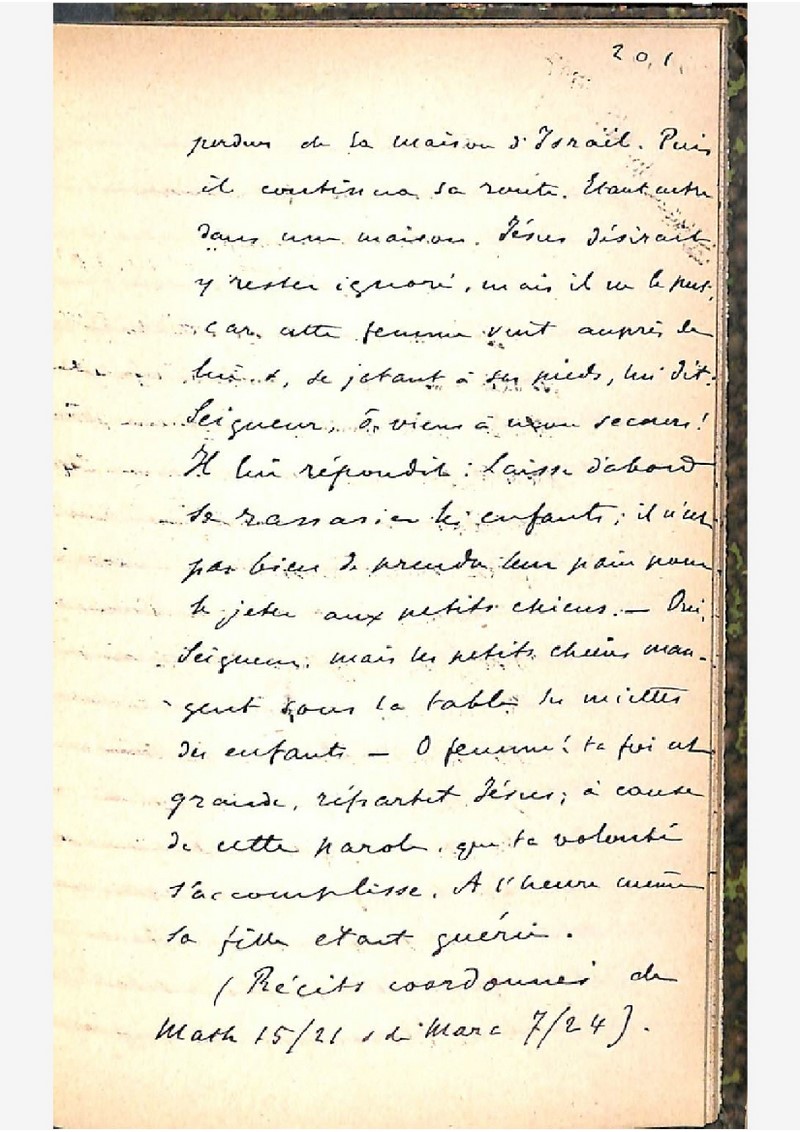 201
perdues de la maison d'Israël. Puis
il continua sa route. Etant entré
dans une maison, Jésus désirait
y rester ignoré, mais il ne le put,
car cette femme vint auprès de
lui &, se jetant à ses pieds, lui dit:
Seigneur, ô, viens à mon secours!
Il lui répondit: Laisse d'abord
se rassasier les enfants; il n'est
pas bien de prendre leur pain pour
le jeter aux petits chiens. — Oui,
Seigneur, mais les petits chiens man-
gent sous la table les miettes
des enfants — O femme! ta foi est
grande, répartit Jésus; à cause
de cette parole, que ta volonté
s'accomplisse. A l'heure même
sa fille était guérie.
(Récits coordonnés de
Math 15/21 & de Marc 7/24).